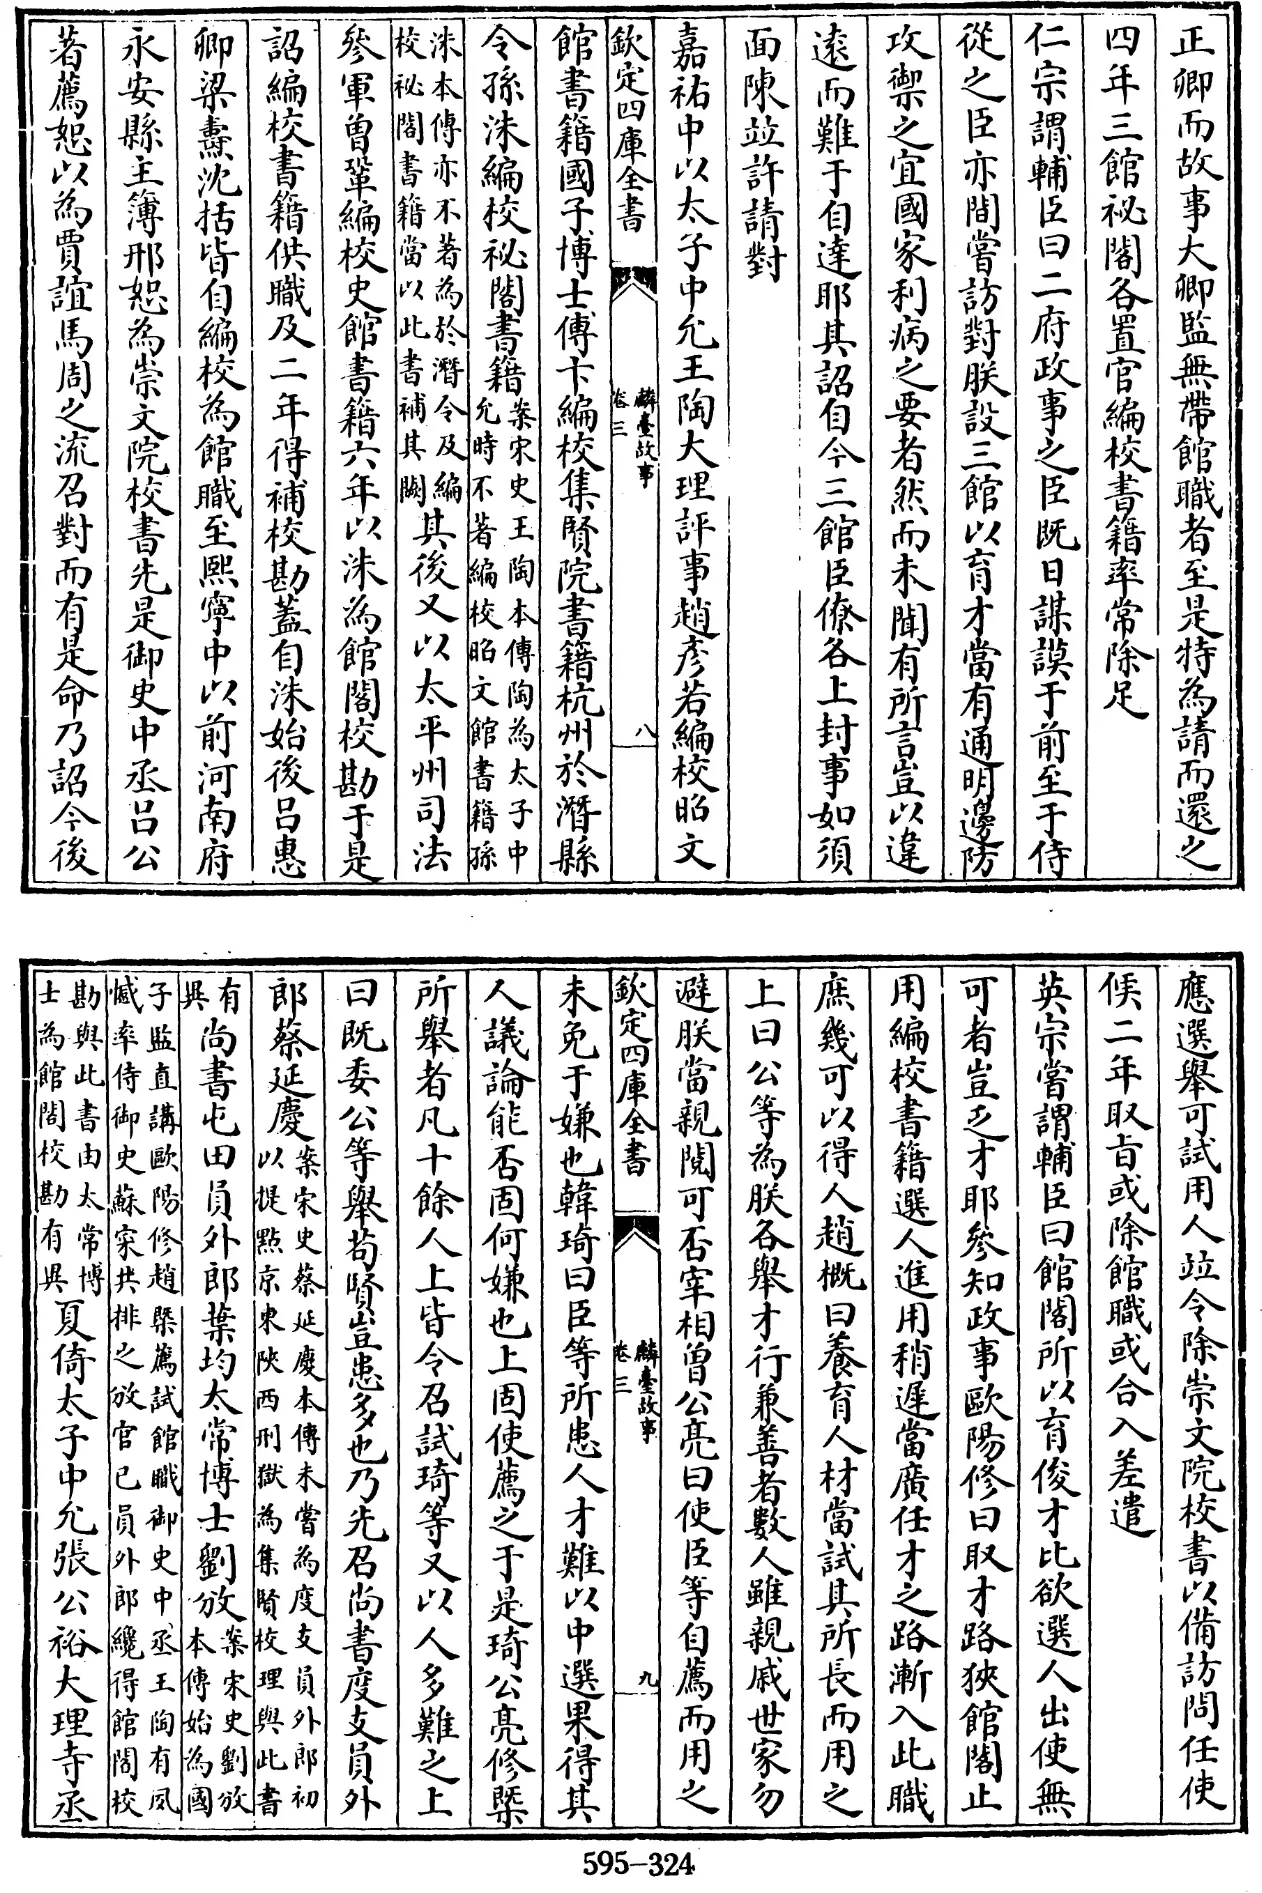 正卿而故事大卿監無帶館職者至是特為請而還之
四年三館祕閣各置官編校書籍率常除足
仁宗謂輔臣曰二府政事之臣既日謀謨于前至于侍
從之臣亦間嘗訪對朕設三館以育才當有通明邊防
攻禦之宜國家利病之要者然而未聞有所言豈以違
遠而難于自達耶其詔自今三館臣僚各上封事如須
面陳竝許請對
嘉祐中以太子中允王陶大理評事趙彥若編校昭文
欽定四庫全書
麟臺故事
卷三
八
館書籍國子博士傅卞編校集賢院書籍杭州於潛縣
令孫洙編校祕閣書籍案宋史王陶本傳陶為太子中
允時不著編校昭文館書籍孫
洙本傳亦不著為於潛令及編
校祕閣書籍當以此書補其闕其後又以太平州司法
參軍曾鞏編校史館書籍六年以洙為館閣校勘于是
詔編校書籍供職及二年得補校勘蓋自洙始後呂惠
卿梁燾沈括皆自編校為館職至熙寧中以前河南府
永安縣主簿邢恕為崇文院校書先是御史中丞呂公
著薦恕以為賈誼馬周之流召對而有是命乃詔今後
應選舉可試用人竝令除崇文院校書以備訪問任使
候二年取旨或除館職或合入差遣
英宗嘗謂輔臣曰館閣所以育俊才比欲選人出使無
可者豈乏才耶參知政事歐陽修曰取才路狹館閣止
用編校書籍選人進用稍遲當廣任才之路漸入此職
庶幾可以得人趙概曰養育人材當試其所長而用之
上曰公等為朕各舉才行兼善者數人雖親戚世家勿
避朕當親閱可否宰相曾公亮曰使臣等自薦而用之
欽定四庫全書
麟臺故事
卷三
九
未免于嫌也韓琦曰臣等所患人才難以中選果得其
人議論能否固何嫌也上固使薦之于是琦公亮修槩
所舉者凡十餘人上皆令召試琦等又以人多難之上
曰既委公等舉苟賢豈患多也乃先召尚書度支員外
郎蔡延慶案宋史蔡延慶本傳未嘗為度支員外郎初
以提點京東陝西刑獄為集賢校理與此書
有
異尚書屯田員外郎葉均太常博士劉攽案宋史劉攽
本傳始為國
子監直講歐陽修趙槩薦試館職御史中丞王陶有夙
憾率侍御史蘇寀共排之攽官已員外郎纔得館閣校
勘與此書由太常博
士為館閣校勘有異夏倚太子中允張公裕大理寺丞
595-324